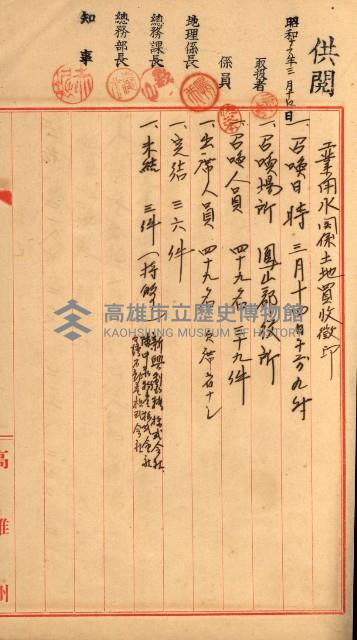 供閱
昭和十六年三月十四日
取扱者
係員
地理係長
總務課長
總務部長
知事
工業用水関係土地買収徴印
一、召喚日時 三月十四日午前九時
一、召喚場所 鳳山郡役所
一、召喚人員 四十九名 三十九件
一、出席人員 四十九名 欠席者ナシ
一、完結 三六件
一、未結 三件
新興製糖株式会社
高雄州
高雄市立歷史博物館
KAOHSIUNG MUSEUM OF HISTORY